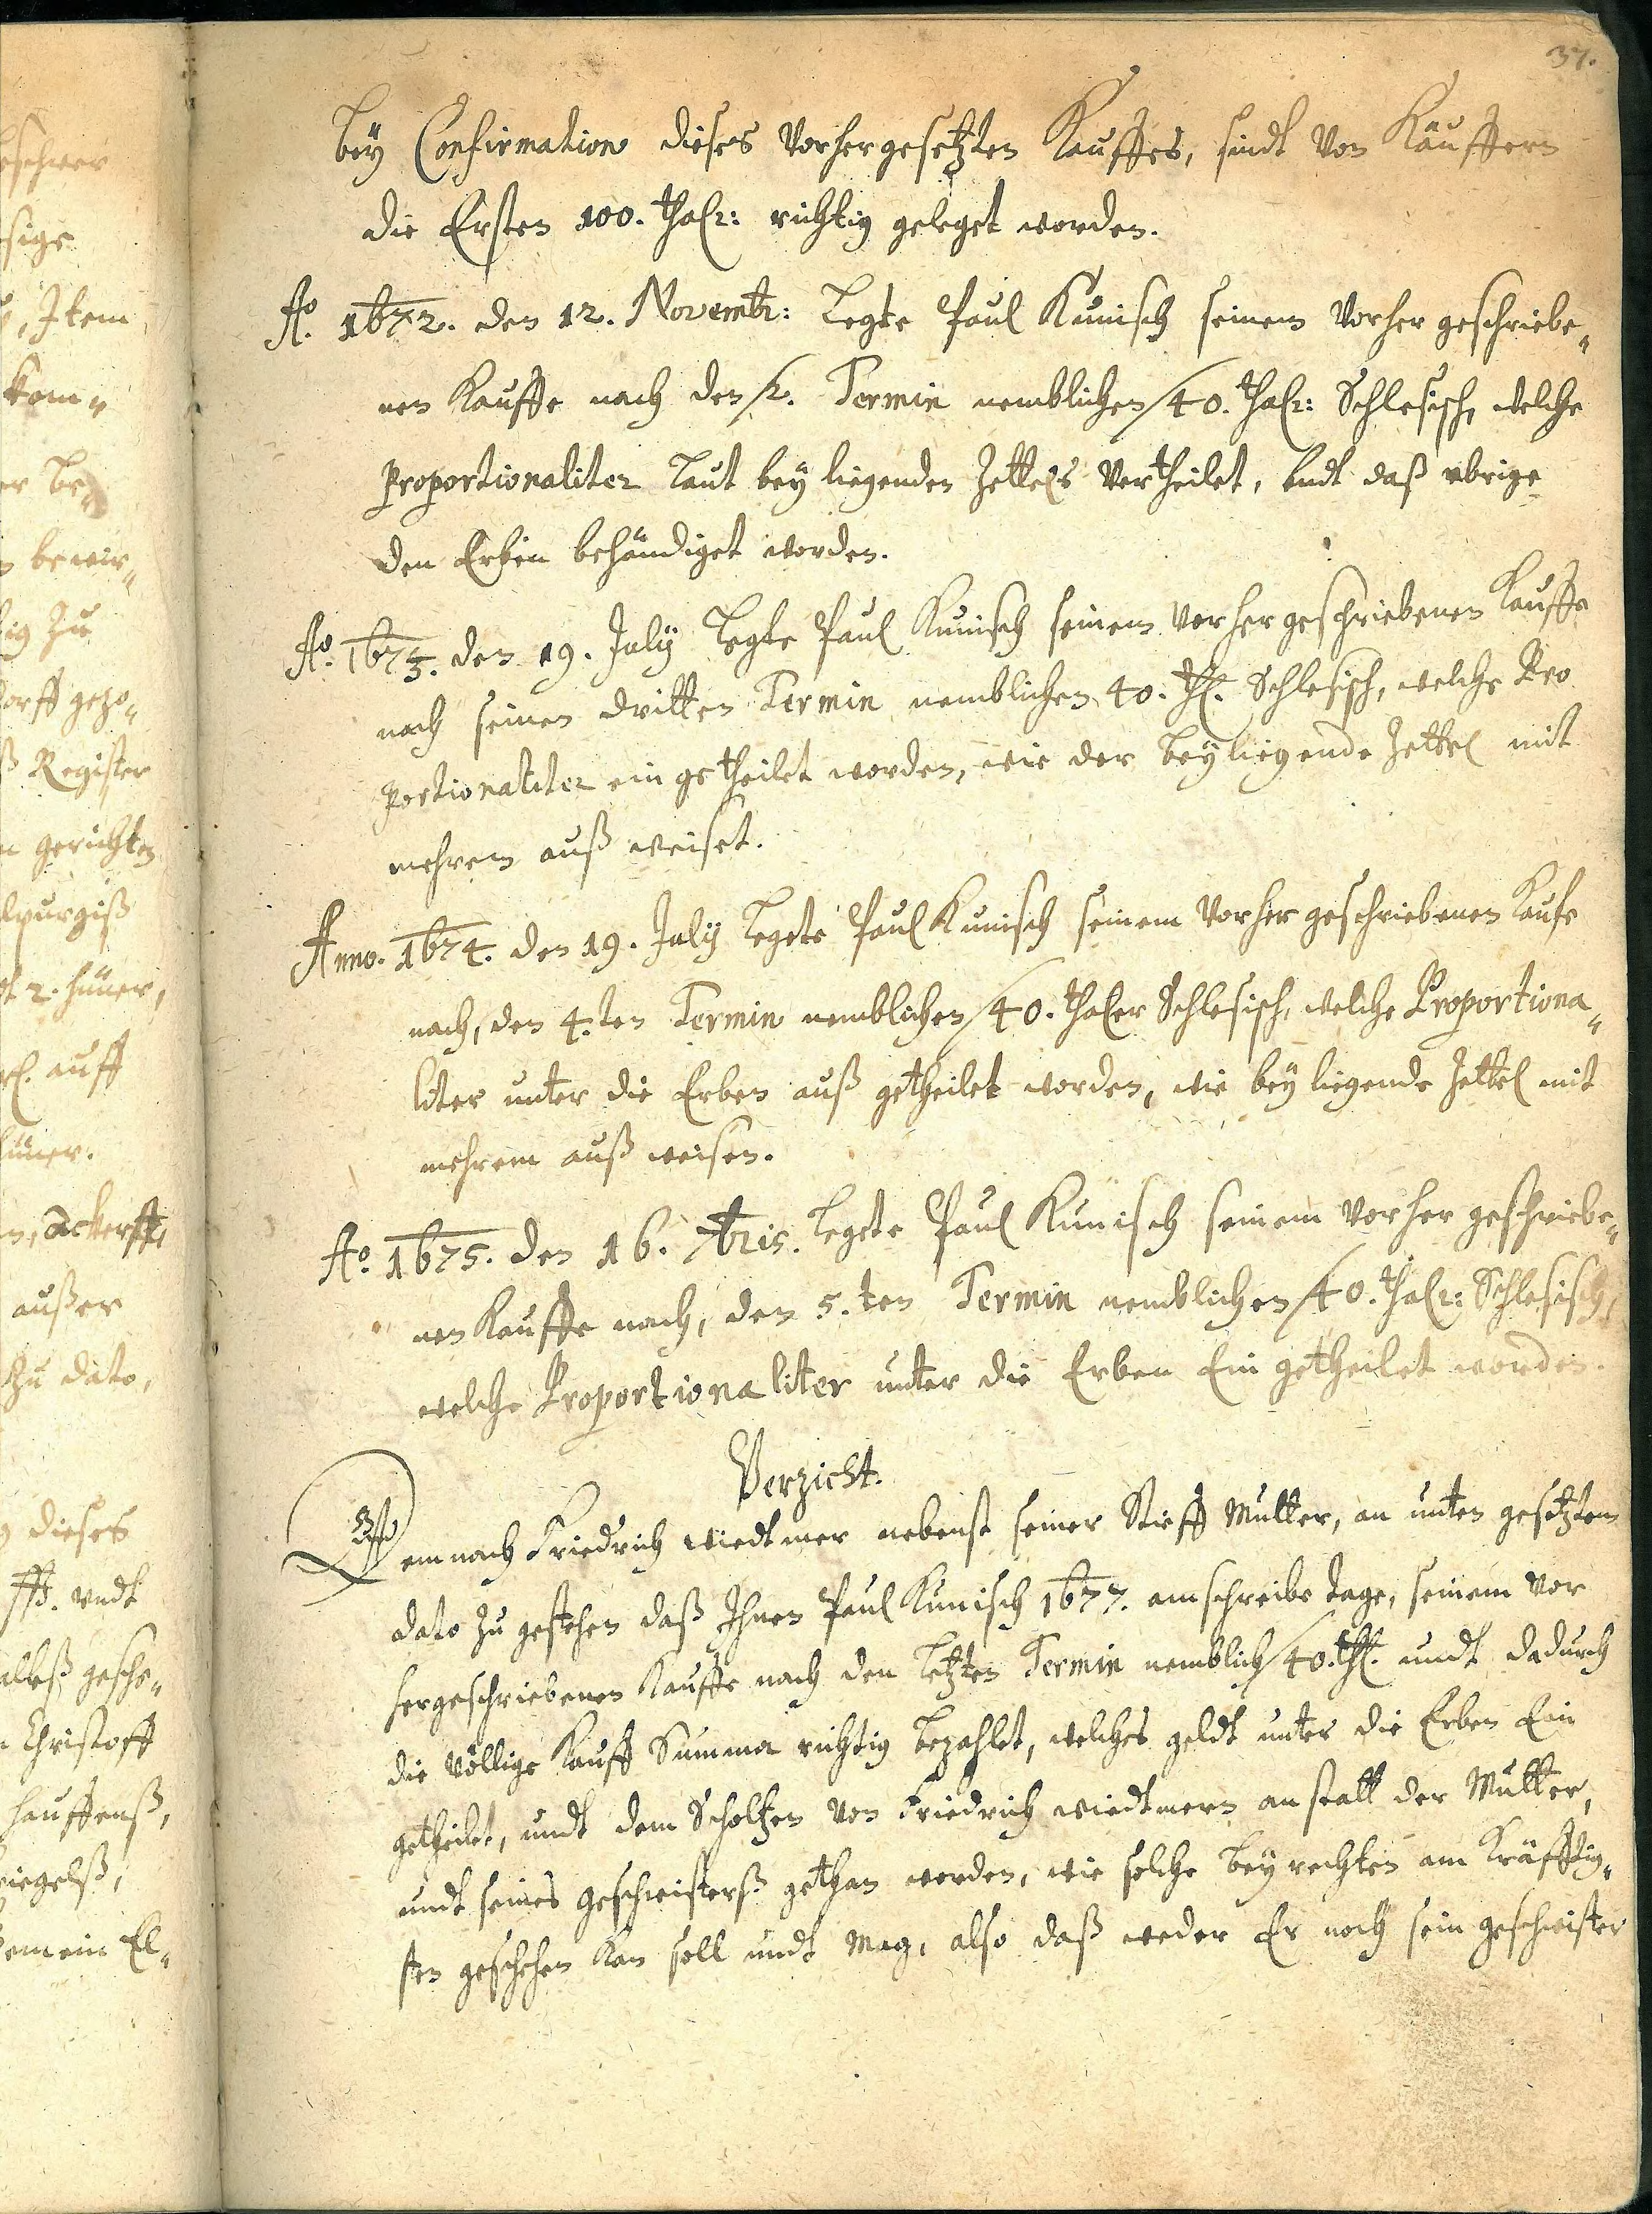 37.
Bey Confirmation dieses Vorhergesetzten Kauffes, sindt von Käuffern
die Ersten 100. thalr: richtig geleget worden.
Ao. 1672. den 12. Novembr: Legte Paul Kunisch seinem Vorher geschriebe„
nen Kauffe nach den 2. Termin nemblichen 40. thalr: Schlesisch, welche
proportionaliter Laut bey liegenden Zettels Vertheilet, undt daß ubrige
den Erben behändiget worden.
Ao. 1673. den 19. July Legte Paul Kunisch seinem Vorhergeschriebenen Kauffe
nach seinen dritten Termin nemblichen 40. thl. Schlesisch, welche Pro
portionaliter ein getheilet worden, wie der beyliegende Zettel mit
mehrem auß weiset.
Anno. 1674. den 19. July Legete Paul Kunisch seinem Vorher geschriebenen Kaufe
nach, den 4.ten Termin nemblichen 40. thaler Schlesisch, welche Proportiona„
liter unter die Erben auß getheilet worden, wie bey liegende Zettel mit
mehrem auß weisen.
Ao. 1675. den 16. 7bris. Legete Paul Kunisch seinem Vorher geschriebe„
nen Kauffe nach, den 5.ten Termin nemblichen 40. thalr: Schlesisch,
welche Proportionaliter unter die Erben Ein getheilet worden.
Verzicht.
Demnach Friedrich Wiedtmer nebenst seiner Stieff Mutter, an unten gesetztem
dato zu gestehen daß Ihnen Paul Kunisch 1677. am schreibe tage, seinem Vor
hergeschriebenen Kauffe nach den Letzten Termin nemblich 40. thl. undt dadurch
die völlige Kauff Summa richtig bezahlet, welches geldt unter die Erben Ein
getheilet, undt dem Scholtzen von Friedrich Wiedtmern anstatt der Mutter,
undt seines geschwisterß gethan worden, wie solche bey rechten am Kräfftig„
sten geschehen kan soll undt mag, also daß weder Er noch sein geschwister